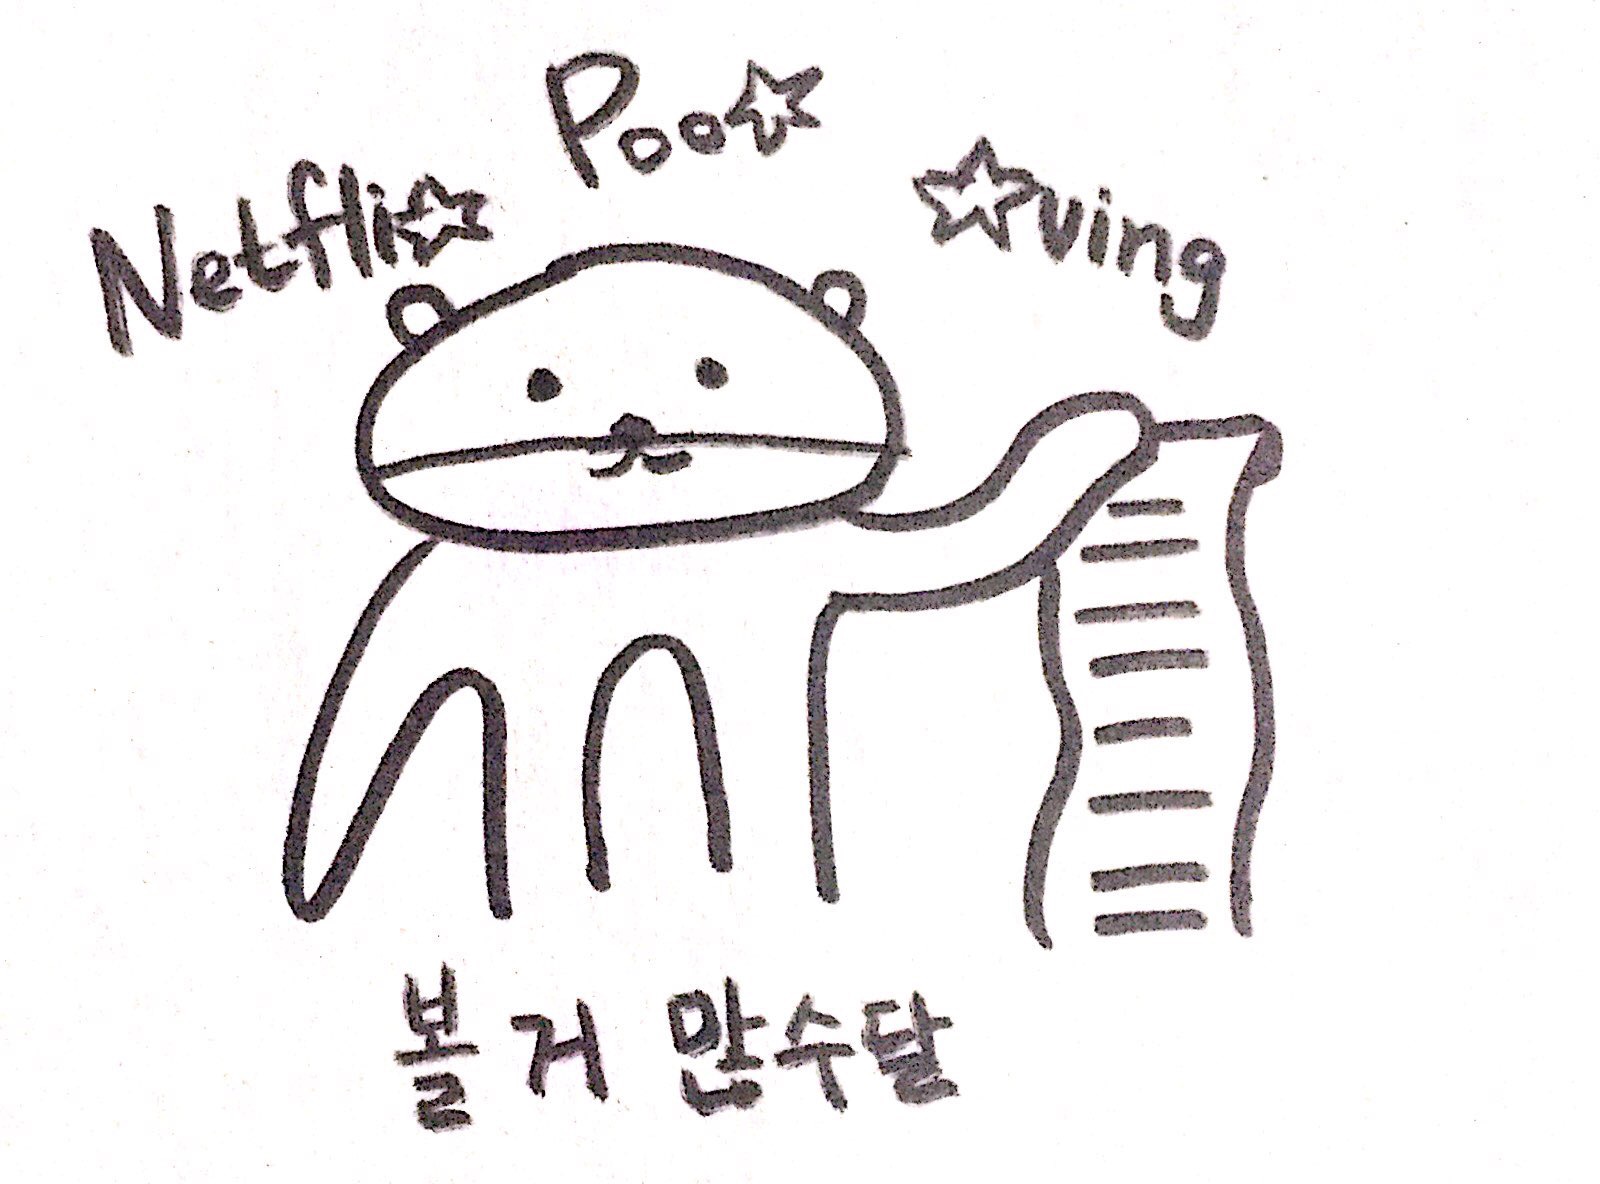 Netfli☆
Poo☆
☆ving
볼 거 많수달